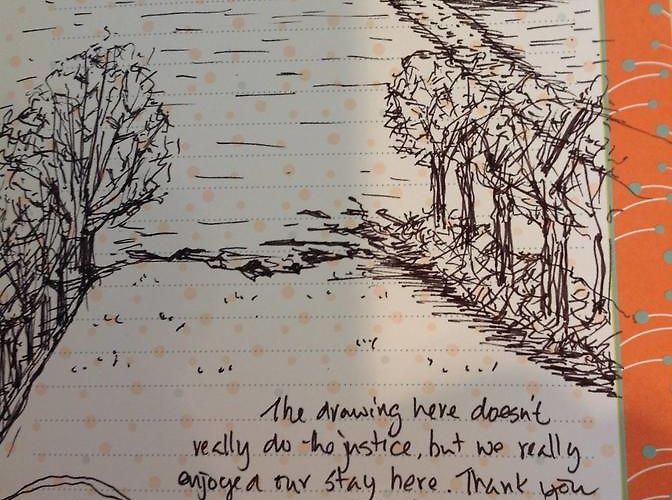 The drawing here doesn't
really do the justice, but we really
enjoyed our stay here. Thank you